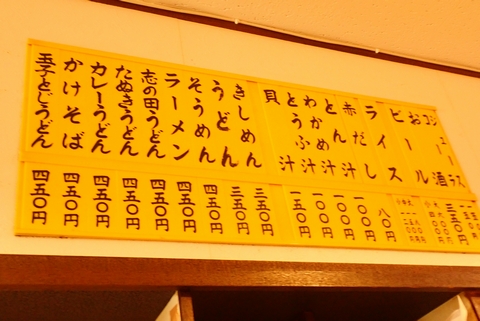 コーラ
ジュース
お酒
ビール
ライス
赤だし
とん汁
わかめ汁
とうふ汁
貝汁
きしめん
うどん
そうめん
ラーメン
志の田うどん
たぬきうどん
カレーうどん
かけそば
玉子とじうどん
八〇円
一〇〇円
一〇〇円
一〇〇円
一五〇円
三五〇円
三五〇円
四五〇円
四五〇円
四五〇円
四五〇円
四五〇円
四五〇円
四五〇円